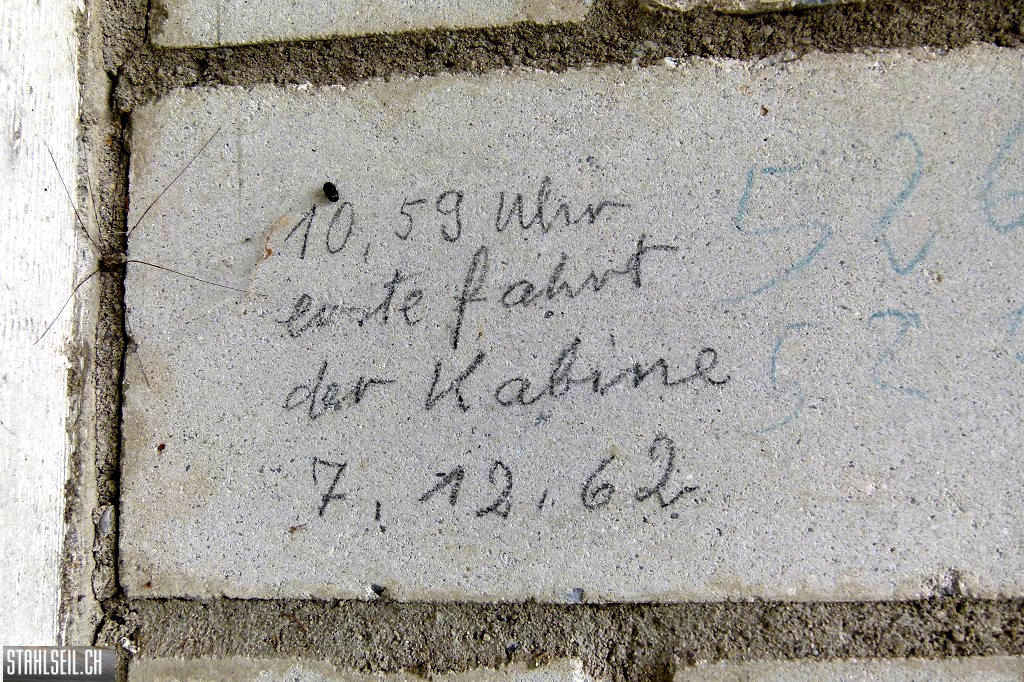 10,59 Uhr
erste fahrt
der Kabine
7.12.62
526
52
STAHLSEIL.CH